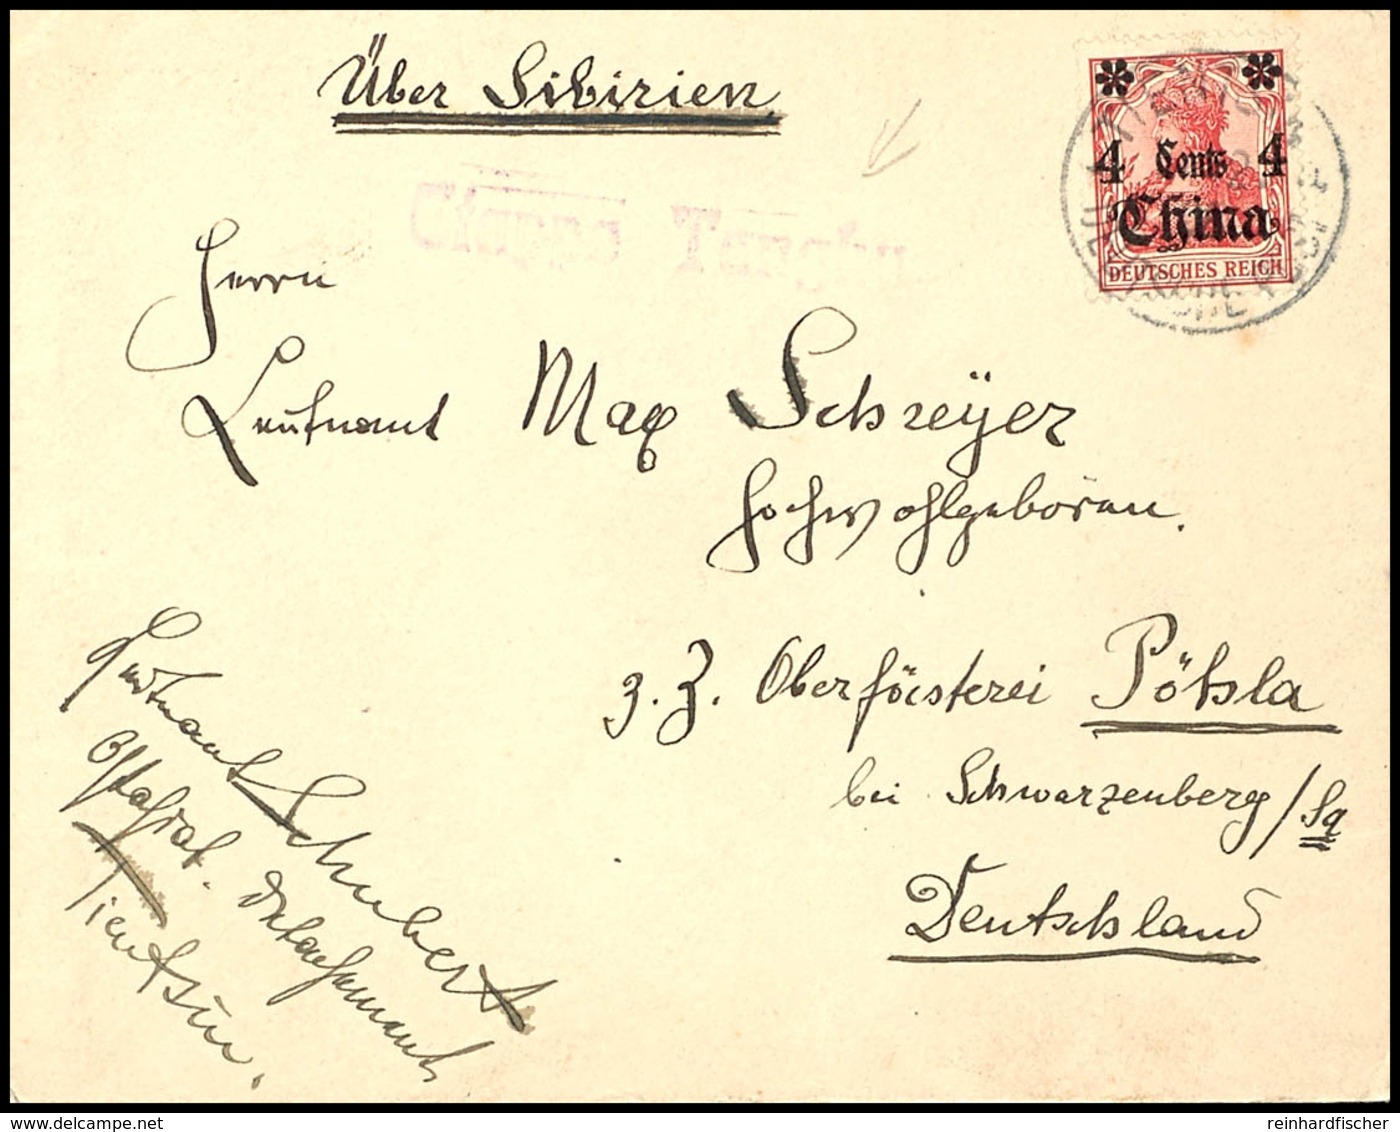 Über Sibirien
4 Cents 4
China
DEUTSCHES REICH
Herrn
Leutnant Max Schreyer
Hochwohlgeboren.
z. Z. Oberförsterei Pöhla
bei Schwarzenberg/Sa
Deutschland
Leutnant Schubert
Ostasiat. Detachement
Tientsin.
reinhardfischer
www.delcampe.net